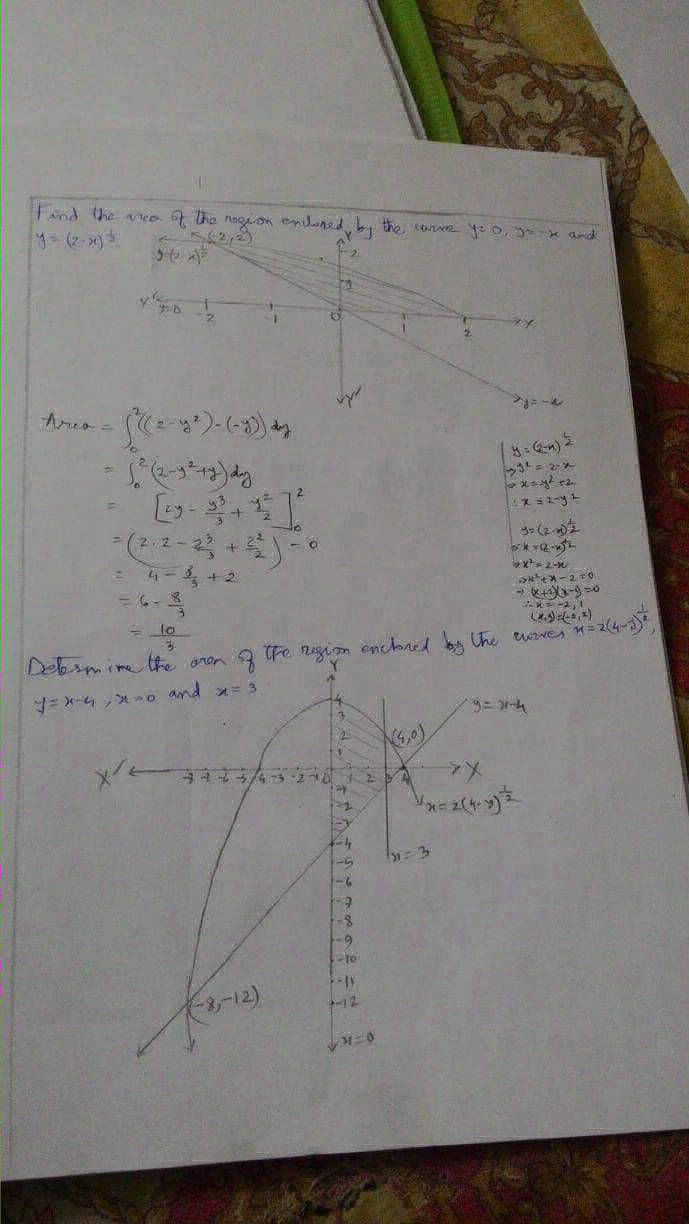 Find the area of the region enclosed by the curve y=0, y=-x and
y=(2-x)^{1/2}
(-2,2)
Y
2
y=(2-x)^{1/2}
X'
y=0
-2
-1
0
1
2
X
Y'
y=-x
Area = ∫₀² ((2-y²)-(-y)) dy
= ∫₀² (2-y²+y) dy
= [2y - y³/3 + y²/2]₀²
= (2.2 - 2³/3 + 2²/2) - 0
= 4 - 8/3 + 2
= 6 - 8/3
= 10/3
y=(2-x)^{1/2}
⇒ y² = 2-x
⇒ x = y²+2
∴ x = 2-y²
y=(2-x)^{1/2}
⇒ -x=(2-x)^{1/2}
⇒ x² = 2-x
⇒ x²+x-2=0
⇒ (x+2)(x-1)=0
∴ x = -2, 1
(x,y)=(-2,2)
Determine the area of the region enclosed by the curves x=2(4-y)^{1/2},
y=x-4, x=0 and x=3
Y
4
3
2
1
(4,0)
y=x-4
X'
-8 -7 -6 -5 -4 -3 -2 -1 0 1 2 3 4
X
x=2(4-y)^{1/2}
x=3
-1
-2
-3
-4
-5
-6
-7
-8
-9
-10
-11
-12
(-8,-12)
x=0